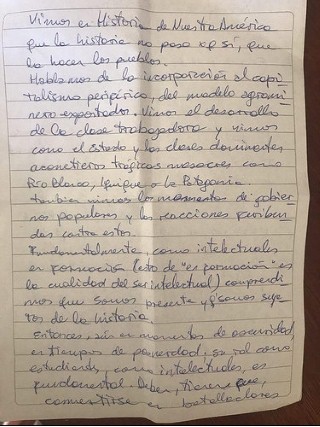 Vimos en Historia de Nuestra América
que la historia no pasa xq sí, que
la hacen los pueblos.
Hablamos de la incorporación al capi
talismo periférico, del modelo agromi-
nero exportador. Vimos el desarrollo
de la clase trabajadora y vimos
como el Estado y las clases dominantes
acometieron trágicas masacres como
Río Blanco, Iquique o la Patagonia.
También vimos los momentos de gobier
nos populares y las reacciones furibun
das contra estos.
Fundamentalmente, como intelectuales
en formación (esto de "en formación" es
la cualidad del ser intelectual) comprendi
mos que somos presente y somos suje
tos de la historia.
Entonces, aún en momentos de oscuridad,
en tiempos de posverdad, su rol como
estudiantes, como intelectuales, es
fundamental. Deben, tienen que,
convertirse en